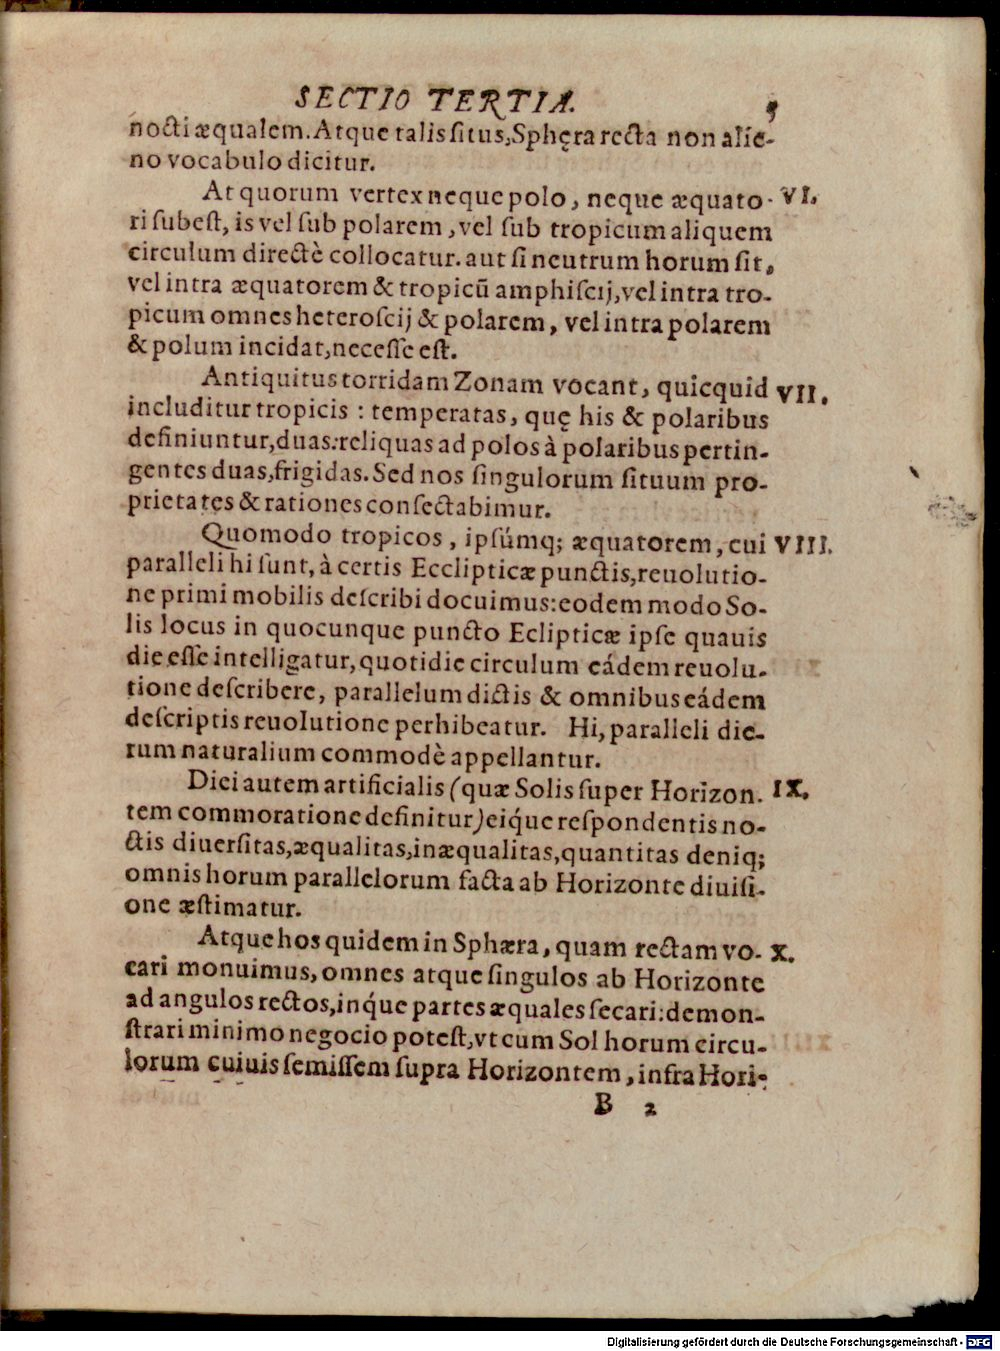 SECTIO TERTIA.
nocti æqualem. Atque talis situs, Sphęra recta non alie-
no vocabulo dicitur.
At quorum vertex neque polo, neque æquato- VI.
ri subest, is vel sub polarem, vel sub tropicum aliquem
circulum directè collocatur. aut si neutrum horum sit,
vel intra æquatorem & tropicū amphiscij, vel intra tro-
picum omnes heteroscij & polarem, vel intra polarem
& polum incidat, necesse est.
Antiquitus torridam Zonam vocant, quicquid VII.
includitur tropicis : temperatas, quę his & polaribus
definiuntur, duas: reliquas ad polos à polaribus pertin-
gentes duas, frigidas. Sed nos singulorum situum pro-
prietates & rationes consectabimur.
Quomodo tropicos, ipsúmq; æquatorem, cui VIII.
paralleli hi sunt, à certis Ecclipticæ punctis, reuolutio-
ne primi mobilis describi docuimus: eodem modo So-
lis locus in quocunque puncto Eclipticæ ipse quauis
die esse intelligatur, quotidie circulum eádem reuolu-
tione describere, parallelum dictis & omnibus eádem
descriptis reuolutione perhibeatur. Hi, paralleli die-
rum naturalium commodè appellantur.
Diei autem artificialis (quæ Solis super Horizon. IX.
tem commoratione definitur) eiq́ue respondentis no-
ctis diuersitas, æqualitas, inæqualitas, quantitas deniq;
omnis horum parallelorum facta ab Horizonte diuisi-
one æstimatur.
Atque hos quidem in Sphæra, quam rectam vo- X.
cari monuimus, omnes atque singulos ab Horizonte
ad angulos rectos, inq́ue partes æquales secari: demon-
strari minimo negocio potest, vt cum Sol horum circu-
lorum cuiuis semissem supra Horizontem, infra Hori-
B 2
Digitalisierung gefördert durch die Deutsche Forschungsgemeinschaft - DFG